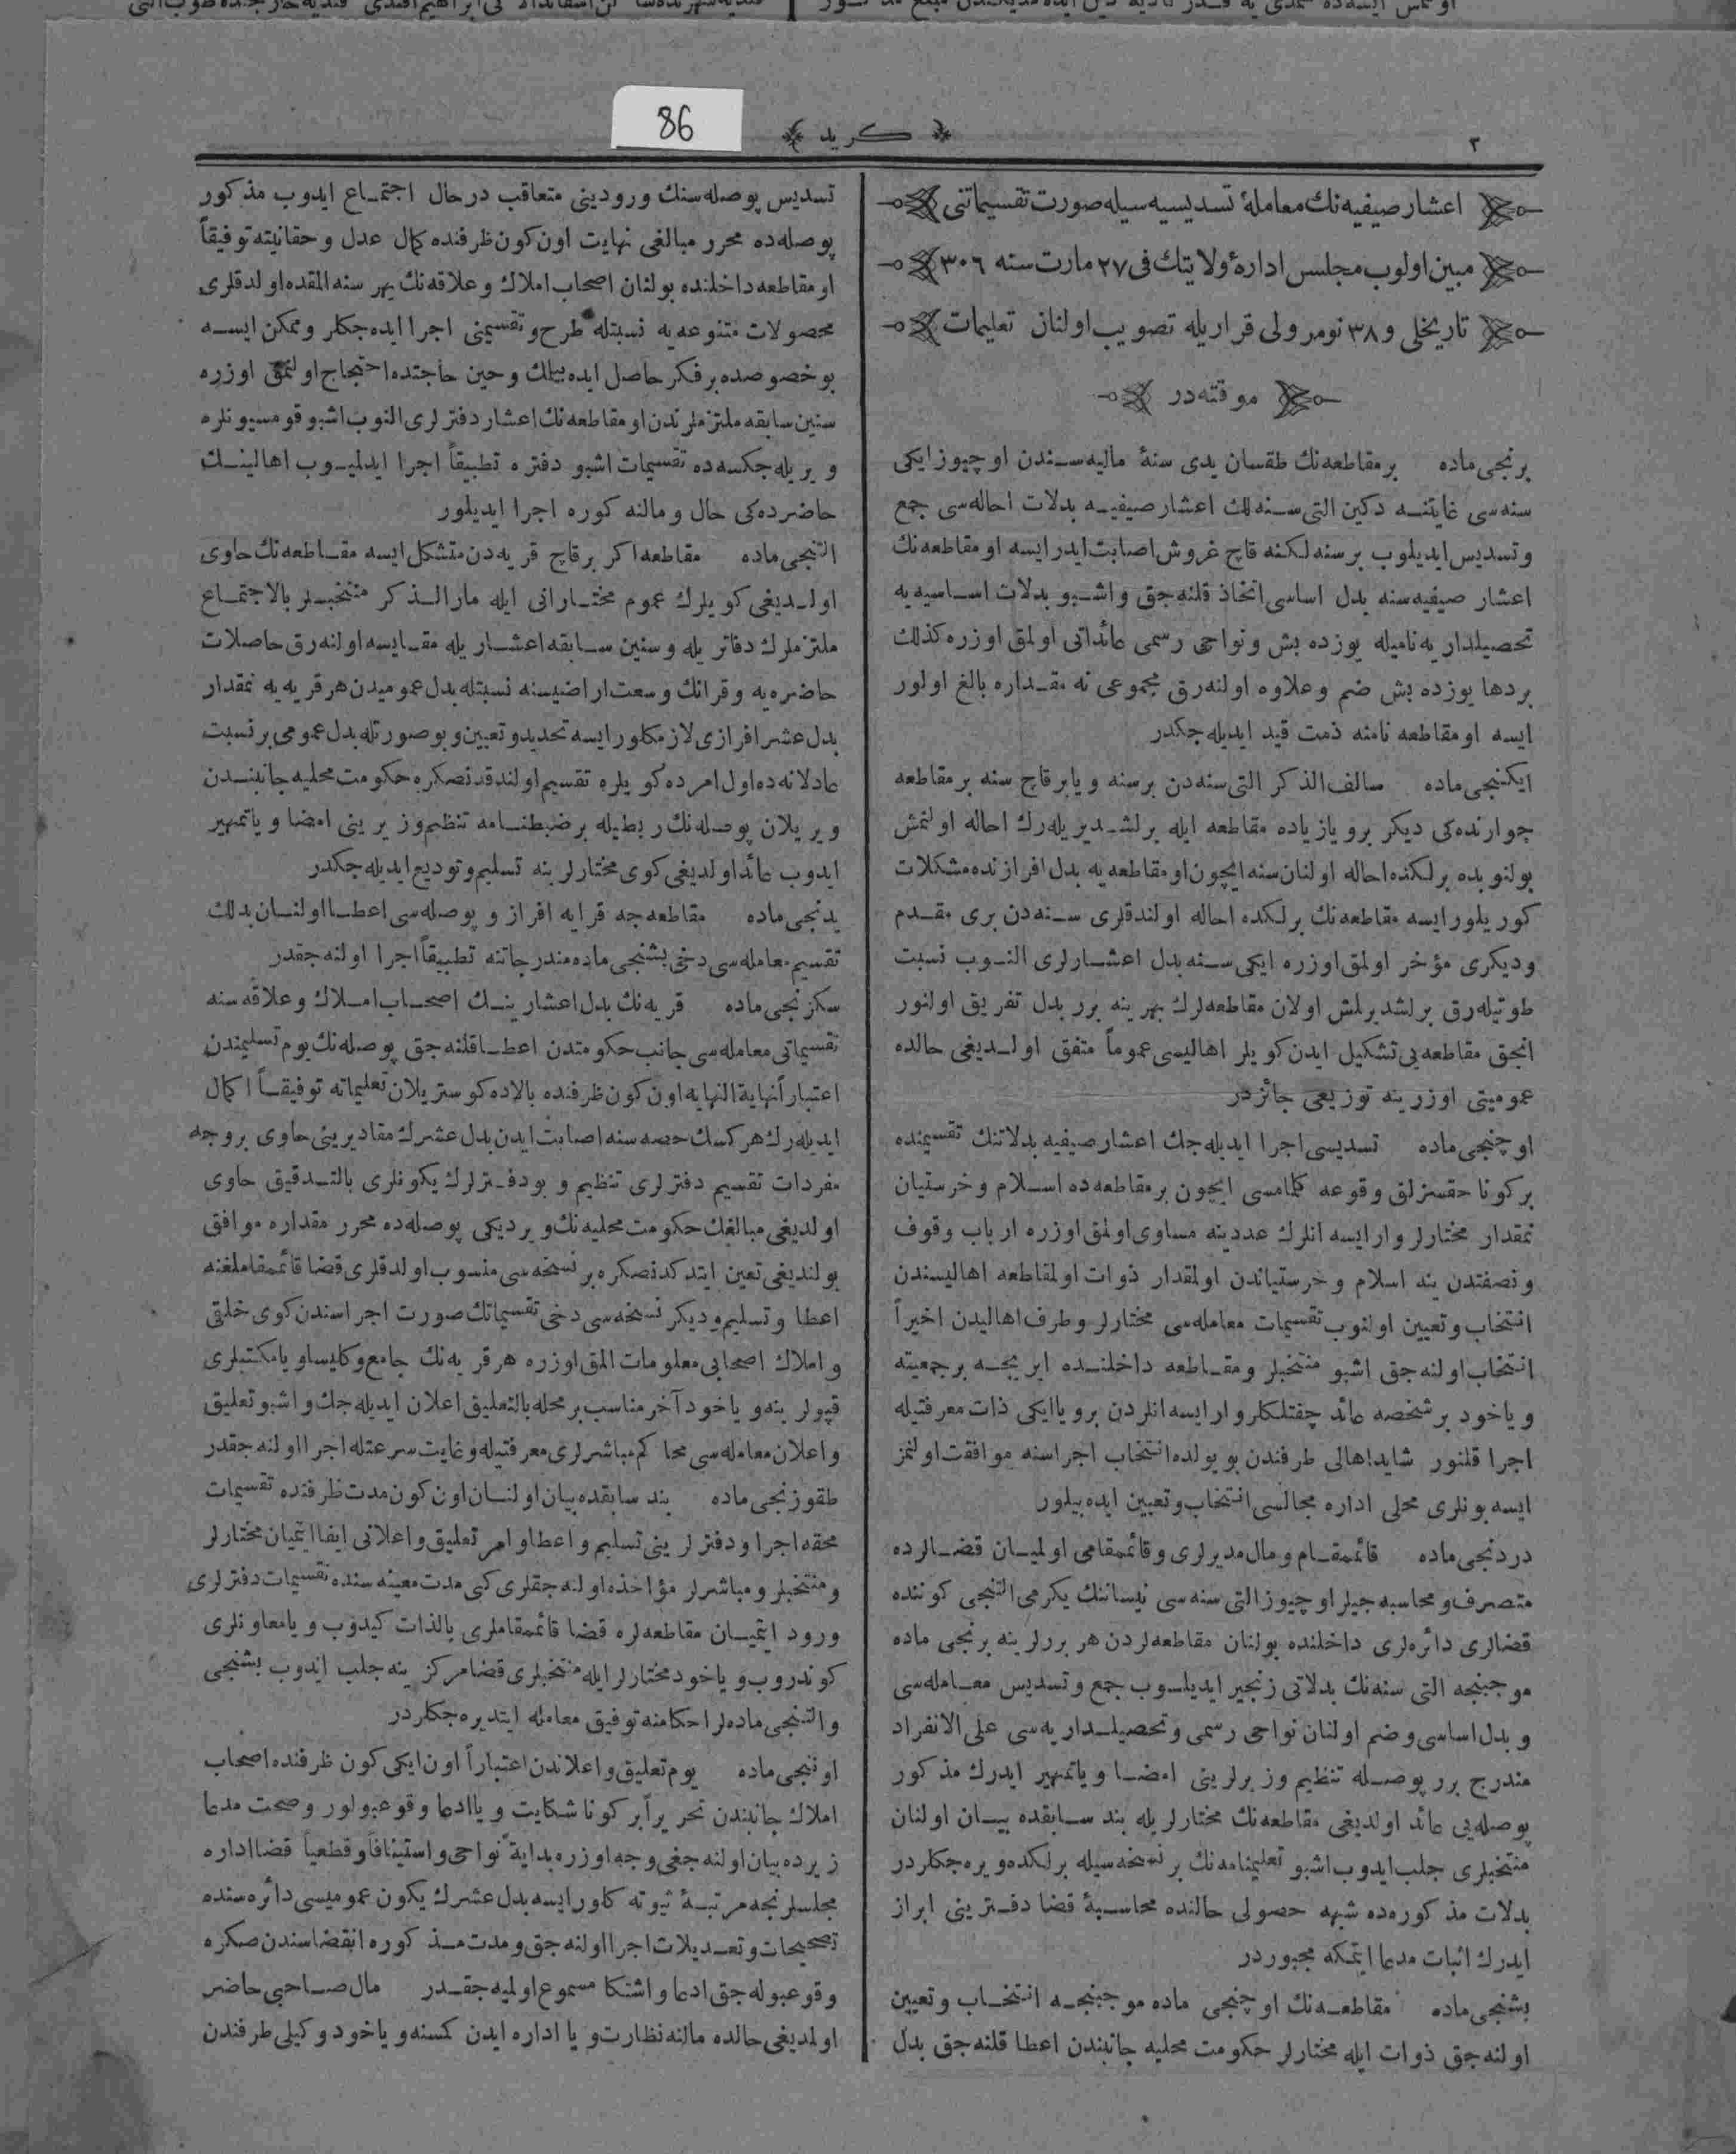 86
كريد
٢
اعشار صيفيه‌نك معاملهٔ تسديسيه سيله صورت تقسيماتنى
مبين اولوب مجلس ادارهٔ ولايتك فى ٢٧ مارت سنه ٣٠٦
تاريخلى و ٣٨ نومرولى قراريله تصويب اولنان تعليمات
موقته‌در
برنجى ماده بر مقاطعه‌نك طقسان يدى سنهٔ ماليه سندن اوچيوز ايكى
سنه‌سى غايتنه دكين التى سنه‌لك اعشار صيفيه بدلات احاله‌سى جمع
وتسديس ايديلوب بر سنه‌لكنه قاچ غروش اصابت ايدر ايسه او مقاطعه‌نك
اعشار صيفيه‌سنه بدل اساسى اتخاذ قلنه‌جق واشبو بدلات اساسيه‌يه
تحصيلداريه ناميله يوزده بش ونواحى رسمى عائداتى اولمق اوزره كذلك
بر دها يوزده بش ضم وعلاوه اولنه‌رق مجموعى نه مقداره بالغ اولور
ايسه او مقاطعه نامنه ذمت قيد ايديله‌جكدر
ايكنجى ماده سالف الذكر التى سنه‌دن بر سنه ويا بر قاچ سنه بر مقاطعه
جوارنده‌كى ديكر بر ويا زياده مقاطعه ايله برلشديريله‌رك احاله اولنمش
بولنوبده برلكده احاله اولنان سنه ايچون او مقاطعه‌يه بدل افرازنده مشكلات
كوريلور ايسه مقاطعه‌نك برلكده احاله اولندقلرى سنه‌دن برى مقدم
وديكرى مؤخر اولمق اوزره ايكى سنه بدل اعشارلرى النوب نسبت
طوتيله‌رق برلشديرلمش اولان مقاطعه‌لرك بهرينه برر بدل تفريق اولنور
انجق مقاطعه‌يى تشكيل ايدن كويلر اهاليسى عموماً متفق اولديغى حالده
عموميتى اوزرينه توزيعى جائزدر
اوچنجى ماده تسديسى اجرا ايديله‌جك اعشار صيفيه بدلاتنك تقسيمنده
بر كونا حقسزلق وقوعه كلمامسى ايچون بر مقاطعه‌ده اسلام وخرستيان
نمقدار مختارلر وار ايسه انلرك عددينه مساوى اولمق اوزره ارباب وقوف
ونصفتدن ينه اسلام وخرستياندن اولمقدار ذوات اولمقاطعه اهاليسندن
انتخاب وتعيين اولنوب تقسيمات معامله‌سى مختارلر وطرف اهاليدن اخيراً
انتخاب اولنه‌جق اشبو منتخبلر ومقاطعه داخلنده ايريجه بر جمعيته
وياخود بر شخصه عائد چفتلكلر وار ايسه انلردن بر ويا ايكى ذات معرفتيله
اجرا قلنور شايد اهالى طرفندن بو يولده انتخاب اجراسنه موافقت اولنمز
ايسه بونلرى محلى اداره مجالسى انتخاب وتعيين ايده‌بيلور
دردنجى ماده قائممقام ومال مديرلرى وقائممقامى اولميان قضالرده
متصرف ومحاسبه جيلر اوچيوز التى سنه‌سى نيساننك يكرمى التنجى كوننده
قضالرى دائره‌لرى داخلنده بولنان مقاطعه‌لردن هر بررلرينه برنجى ماده
موجبنجه التى سنه‌نك بدلاتى زنجير ايديلوب جمع وتسديس معامله‌سى
وبدل اساسى وضم اولنان نواحى رسمى وتحصيلداريه‌سى على الانفراد
مندرج برر پوصله تنظيم وزيرلرينى امضا ويا تمهير ايدرك مذكور
پوصله‌يى عائد اولديغى مقاطعه‌نك مختارلريله بند سابقده بيان اولنان
منتخبلرى جلب ايدوب اشبو تعليمنامه‌نك بر نسخه‌سيله برلكده ويره‌جكلردر
بدلات مذكوره‌ده شبهه حصولى حالنده محاسبهٔ قضا دفترينى ابراز
ايدرك اثبات مدعا ايتمكه مجبوردر
بشنجى ماده مقاطعه‌نك اوچنجى ماده موجبنجه انتخاب وتعيين
اولنه‌جق ذوات ايله مختارلر حكومت محليه جانبندن اعطا قلنه‌جق بدل
تسديس پوصله‌سنك ورودينى متعاقب درحال اجتماع ايدوب مذكور
پوصله‌ده محرر مبالغى نهايت اون كون ظرفنده كمال عدل وحقانيته توفيقاً
او مقاطعه داخلنده بولنان اصحاب املاك وعلاقه‌نك بهر سنه المقده اولدقلرى
محصولات متنوعه‌يه نسبتله طرح وتقسيمنى اجرا ايده‌جكلر وممكن ايسه
بو خصوصده بر فكر حاصل ايده‌بيلك وحين حاجتده احتجاج اولنمق اوزره
سنين سابقه ملتزملرندن او مقاطعه‌نك اعشار دفترلرى النوب اشبو قومسيونلره
ويريله‌جكسه‌ده تقسيمات اشبو دفتره تطبيقاً اجرا ايدلميوب اهالينك
حاضرده‌كى حال ومالنه كوره اجرا ايديلور
التنجى ماده مقاطعه اكر بر قاچ قريه‌دن متشكل ايسه مقاطعه‌نك حاوى
اولديغى كويلرك عموم مختارانى ايله مارالذكر منتخبلر بالاجتماع
ملتزملرك دفاتريله وسنين سابقه اعشاريله مقايسه اولنه‌رق حاصلات
حاضره‌يه وقرانك وسعت اراضيسنه نسبتله بدل عموميدن هر قريه‌يه نمقدار
بدل عشر افرازى لازمكلور ايسه تحديد وتعيين وبو صورتله بدل عمومى بر نسبت
عادلانه‌ده اول امرده كويلره تقسيم اولندقدنصكره حكومت محليه جانبندن
ويريلان پوصله‌نك ربطيله بر ضبطنامه تنظيم وزيرينى امضا ويا تمهير
ايدوب عائد اولديغى كوى مختارلرينه تسليم وتوديع ايديله‌جكدر
يدنجى ماده مقاطعه‌جه قرايه افراز و پوصله‌سى اعطا اولنان بدلك
تقسيم معامله‌سى دخى بشنجى ماده مندرجاتنه تطبيقاً اجرا اولنه‌جقدر
سكزنجى ماده قريه‌نك بدل اعشارينك اصحاب املاك وعلاقه‌سنه
تقسيماتى معامله‌سى جانب حكومتدن اعطا قلنه‌جق پوصله‌نك يوم تسليمندن
اعتباراً نهاية النهايه اون كون ظرفنده بالاده كوستريلان تعليماته توفيقاً اكمال
ايديله‌رك هر كسك حصه‌سنه اصابت ايدن بدل عشرك مقاديرينى حاوى بروجه
مفردات تقسيم دفترلرى تنظيم وبو دفترلرك يكونلرى بالتدقيق حاوى
اولديغى مبالغك حكومت محليه‌نك ويرديكى پوصله‌ده محرر مقداره موافق
بولنديغى تعين ايتدكدنصكره بر نسخه‌سى منسوب اولدقلرى قضا قائممقاملغنه
اعطا وتسليم وديكر نسخه‌سى دخى تقسيماتك صورت اجراسندن كوى خلقى
واملاك اصحابى معلومات المق اوزره هر قريه‌نك جامع وكليسا ويا مكتبلرى
قپولرينه ويا خود آخر مناسب بر محله بالتعليق اعلان ايديله‌جك واشبو تعليق
واعلان معامله‌سى محاكم مباشرلرى معرفتيله وغايت سرعتله اجرا اولنه‌جقدر
طقوزنجى ماده بند سابقده بيان اولنان اون كون مدت ظرفنده تقسيمات
محقه اجرا ودفترلرينى تسليم واعطا وامر تعليق واعلانى ايفا ايتميان مختارلر
ومنتخبلر ومباشرلر مؤاخذه اولنه‌جقلرى كى مدت معينه‌سنده تقسيمات دفترلرى
ورود ايتميان مقاطعه‌لره قضا قائممقاملرى بالذات كيدوب ويا معاونلرى
كوندروب ويا خود مختارلر ايله منتخبلرى قضا مركزينه جلب ايدوب بشنجى
والتنجى ماده‌لر احكامنه توفيق معامله ايتديره‌جكلردر
اوننجى ماده يوم تعليق واعلاندن اعتباراً اون ايكى كون ظرفنده اصحاب
املاك جانبندن تحريراً بر كونا شكايت ويا ادعا وقوعبولور وصحت مدعا
زيرده بيان اولنه‌جغى وجه اوزره بدايةً نواحى واستينافاً وقطعياً قضا اداره
مجلسلرنجه مرتبهٔ ثبوته كلور ايسه بدل عشرك يكون عموميسى دائره‌سنده
تصحيحات وتعديلات اجرا اولنه‌جق ومدت مذكوره انقضاسندن صكره
وقوعبوله‌جق ادعا واشتكا مسموع اولميه‌جقدر مال صاحبى حاضر
اولمديغى حالده مالنه نظارت ويا اداره ايدن كمسنه ويا خود وكيلى طرفندن